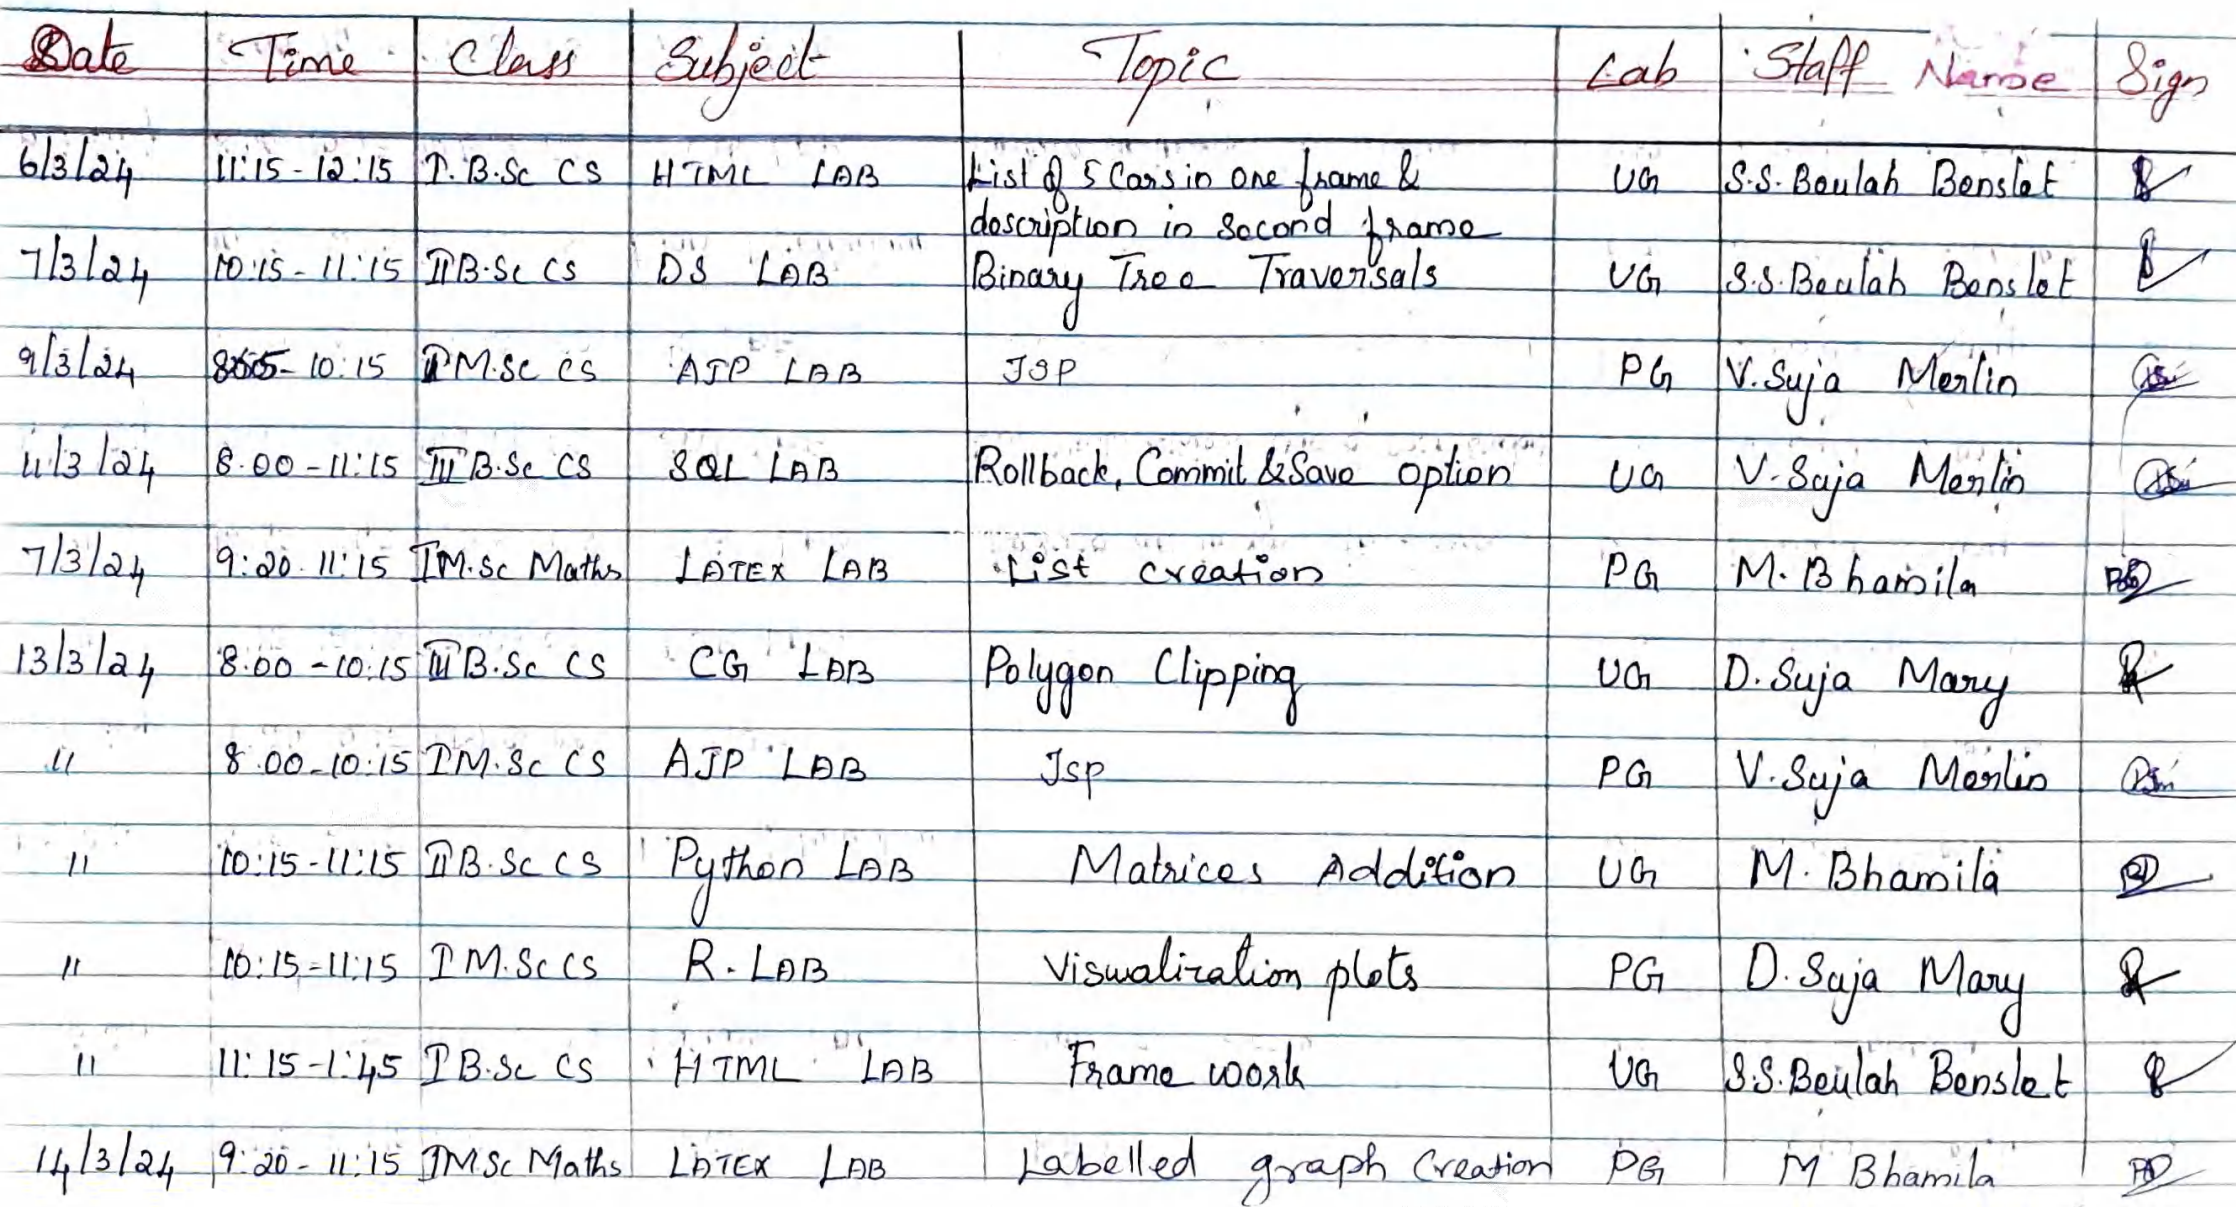 Date Time Class Subject Topic Lab Staff Name Sign
6/3/24 11:15 - 12:15 I. B.Sc CS HTML LAB List of 5 Cars in one frame & UG S.S. Beulah Benslet
description in second frame
7/3/24 10:15 - 11:15 II B.Sc CS DS LAB Binary Tree Traversals UG S.S. Beulah Benslet
9/3/24 - 10:15 I M.Sc CS AJP LAB JSP PG V. Suja Merlin
11/3/24 8.00 - 11:15 III B.Sc CS SQL LAB Rollback, Commit & Save option UG V. Suja Merlin
7/3/24 9:20 - 11:15 I M.Sc Maths LATEX LAB List creation PG M. Bhamila
13/3/24 8.00 - 10:15 III B.Sc CS CG LAB Polygon Clipping UG D. Suja Mary
11 8.00 - 10:15 I M.Sc CS AJP LAB Jsp PG V. Suja Merlin
11 10:15 - 11:15 II B.Sc CS Python LAB Matrices Addition UG M. Bhamila
11 10:15 - 11:15 I M.Sc CS R. LAB Viswalization plots PG D. Suja Mary
11 11:15 - 1:45 I B.Sc CS HTML LAB Frame work UG S.S. Beulah Benslet
14/3/24 9:20 - 11:15 I M.Sc Maths LATEX LAB Labelled graph Creation PG M Bhamila